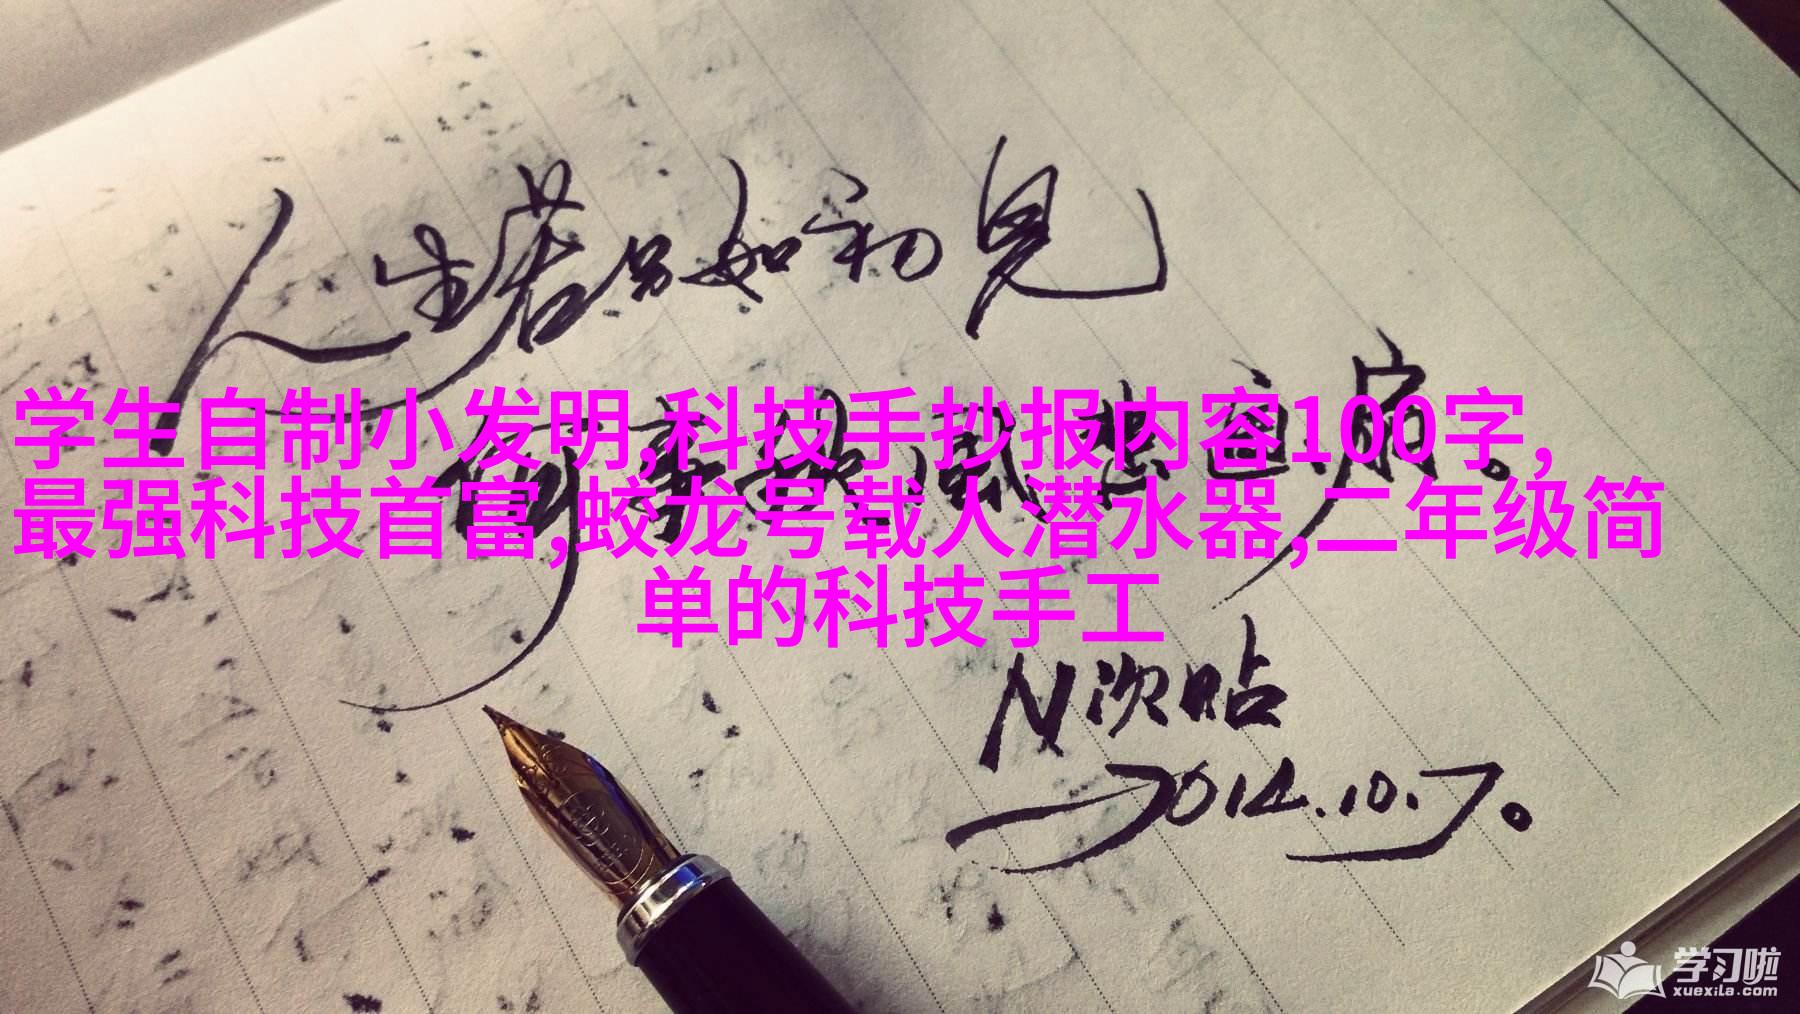 人生若只如初见
何事秋风悲画扇。
学生自制小发明,科技手抄报内容100字,
最强科技首富,蛟龙号载人潜水器,二年级简
单的科技手工
N次贴
2014.10.7。
学习啦
xuexila.com